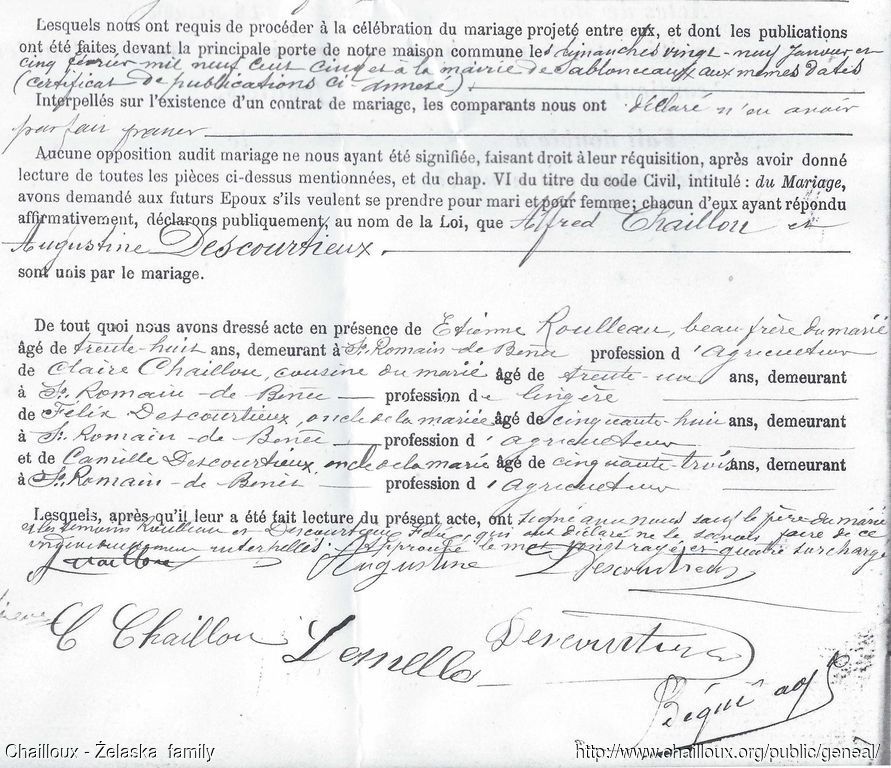 Lesquels nous ont requis de procéder à la célébration du mariage projeté entre eux, et dont les publications
ont été faites devant la principale porte de notre maison commune les dimanches vingt-neuf janvier et
cinq février mil neuf cent cinq et à la mairie de Sablonceaux aux mêmes dates
(certificat de publications ci-annexé).
Interpellés sur l'éxistence d'un contrat de mariage, les comparants nous ont déclaré n'en avoir
pas fait passer
Aucune opposition audit mariage ne nous ayant été signifiée, faisant droit à leur réquisition, après avoir donné
lecture de toutes les pièces ci-dessus mentionnées, et du chap. VI du titre du code Civil, intitulé : du Mariage,
avons demandé aux futurs Epoux s'ils veulent se prendre pour mari et pour femme; chacun d'eux ayant répondu
affirmativement, déclarons publiquement, au nom de la Loi, que Alfred Chaillou et
Augustine Descourtieux.
sont unis par le mariage.
De tout quoi nous avons dressé acte en présence de Etienne Roulleau, beau frère du marié
âgé de trente-huit ans, demeurant à St Romain-de-Benêt profession d'agriculteur
de Claire Chaillou, cousine du marié âgé de trente-un ans, demeurant
à St Romain-de-Benêt profession de lingère
de Félix Descourtieux, oncle de la mariée âgé de cinquante-huit ans, demeurant
à St Romain-de-Benêt profession d'agriculteur
et de Camille Descourtieux, oncle de la marié âgé de cinquante-trois ans, demeurant
à St Romain-de-Benêt profession d'agriculteur
Lesquels, après qu'il leur a été fait lecture du présent acte, ont signé avec nous sauf le père du marié
et les témoins Roulleau et Descourtieux Félix, qui ont déclaré ne le savoir faire de ce
individuellement interpellés. Approuvé le mot rayé et quatre surchargé
Chaillou Augustine Descourtieux
C Chaillou Descourtieux
Chailloux - Żelaska family http://www.chailloux.org/public/geneal/